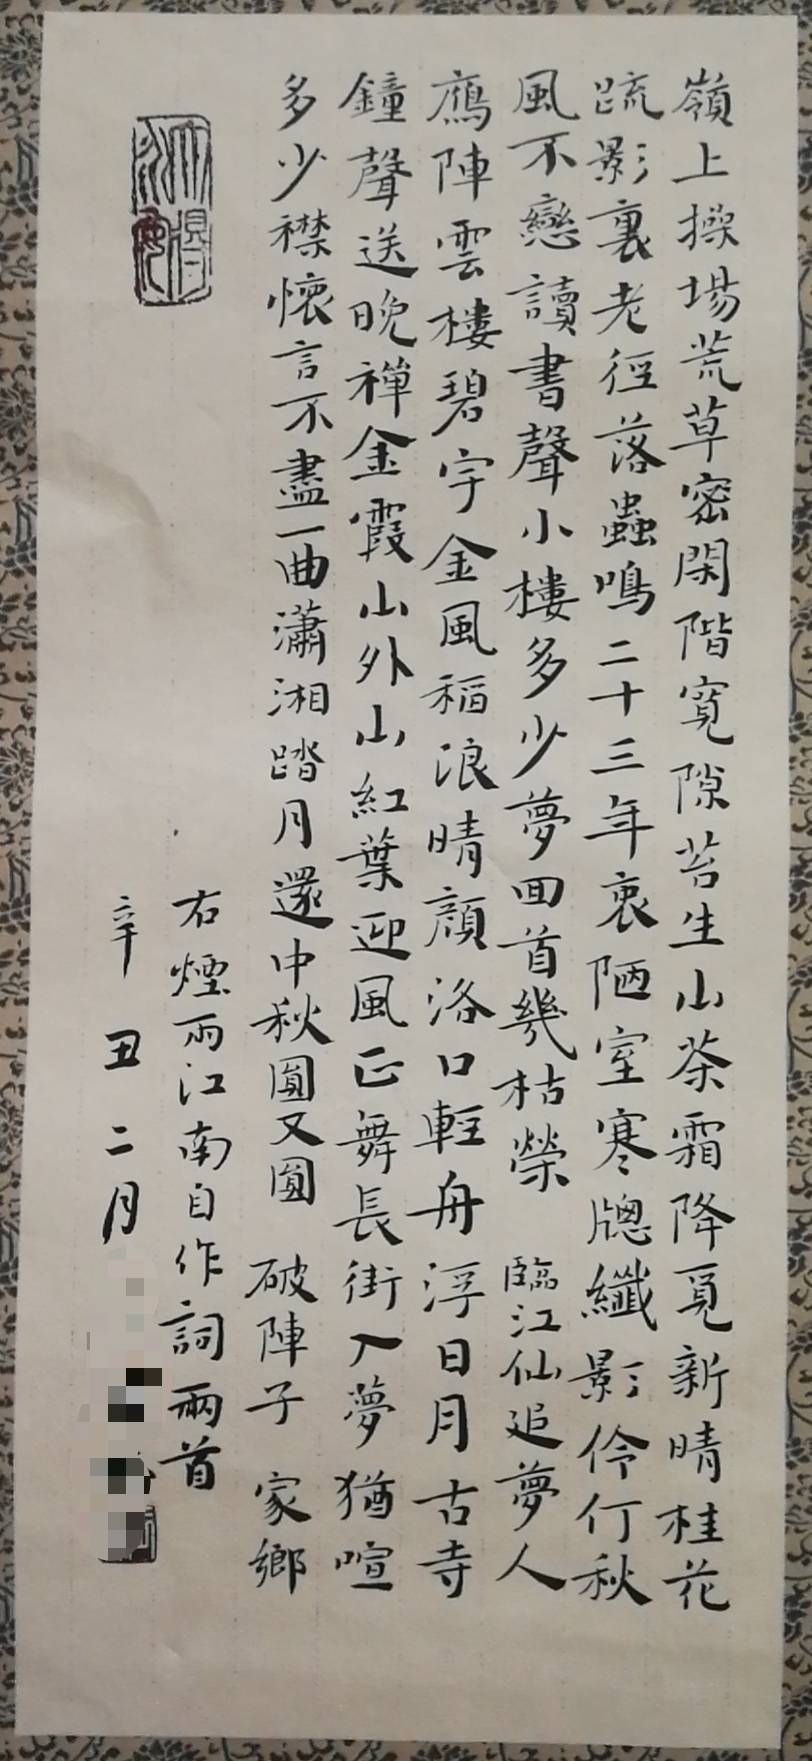 嶺上操場荒草密閑階寬隙苔生山茶霜降覓新晴桂花
疏影裏老徑落蟲鳴二十三年衷陋室寒牕纖影伶仃秋
風不戀讀書聲小樓多少夢回首幾枯榮 臨江仙追夢人
鴈陣雲樓碧宇金風稻浪晴顏洛口輕舟浮日月古寺
鐘聲送晚禪金霞山外山紅葉迎風正舞長街入夢猶喧
多少襟懷言不盡一曲瀟湘踏月還中秋圓又圓 破陣子 家鄉
右煙雨江南自作詞兩首
辛丑二月